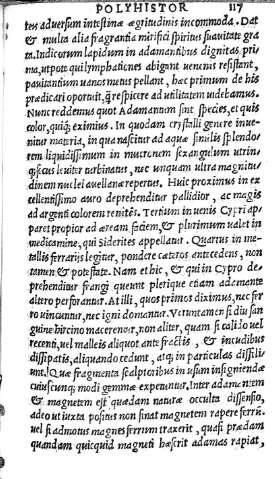 POLYHISTOR 117
ten aduersum intestinæ ægritudinis incommoda. Dat
& multa alia fragrantia mirifici spiritus suauitate gra
ta. Indicorum lapidum in adamantibus dignitas pri
ma, utpote qui lymphationes abigunt uenenis resistunt,
pauitantium uanos metus pellunt, hæc primum de his
prædicari oportuit, q̃ respicere ad utilitatem uidebamus.
Nunc reddemus quot Adamantum sint species, et quis
color, quiq; eximius. In quodam crystalli genere inue
nitur materia, in qua nascitur ad aquæ similis splendo-
rem liquidissimum in mucronem sexangulum utrin-
q; secus leuiter turbinatus, nec unquam ultra magnitu-
dinem nuclei auellanæ repertus. Huic proximus in ex
cellentissimo auro deprehenditur pallidior, ac magis
ad argenti colorem renitēs. Tertium in uenis Cypri ap-
paret propior ad æream faciem, & plurimum ualet in
medicamine, qui Siderites appellatur. Quartus in me-
tallis ferrarijs legitur, pondere cæteros antecedens, non
tamen & potestate. Nam et hic, & qui in Cypro de-
prehenditur frangi queunt plerique etiam adamante
altero perforantur. At illi, quos primos diximus, nec fer
ro uincuntur, nec igni domantur. Veruntamen si diu san
guine hircino macerentur, non aliter, quam si calido uel
recenti, uel malleis aliquot ante fractis, & incudibus
dissipatis, aliquando cedunt, atq; in particulas dissili-
unt. Quæ fragmenta scalptoribus in usum insigniendæ
cuiuscunq; modi gemmæ expetuntur. Inter adamantem
& magnetem est quædam naturæ occulta dissensio,
adeo ut iuxta positus non sinat magnetem rapere ferrū.
uel si admotus magnes ferrum traxerit, quasi prædam
quandam quicquid magneti hæserit adamas rapiat,